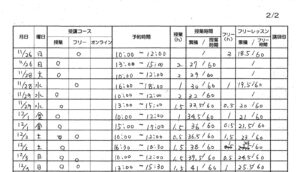 2/2
月日 曜日 受講コース 予約時間 授業(h) 授業時間 フリー(h) フリーレッスン 講師印
授業 フリー オンライン 累積 / 授業時間 累積 / フリー時間
11/26 日 ○ 10:00 ~ 12:00 / 2 18.5/60
11/26 日 ○ 13:00 ~ 15:00 2 27/60
11/28 火 ○ 10:00 ~ 12:00 2 29/60
11/28 火 ○ ○ 1 30/60 1 19.5/60
11/29 水 ○ 10:00 ~ 12:00 2 32/60
11/29 水 ○ ○ 13:00 ~ 15:00 1.5 33.5/60 0.5 20/60
12/1 金 ○ ○ 10:00 ~ 12:00 1 34.5/60 1 21/60
12/1 金 ○ ○ 1.5 36/60 0.5 21.5/60
12/2 土 ○ ○ 10:00 ~ 12:00 0.5 36.5/60 1.5 23/60
12/2 土 ○ 1.5 38/60
12/3 日 ○ ○ 10:00 ~ 12:00 1.5 39.5/60 0.5 24.5/60
12/3 日 ○ ○ 13:00 ~ 15:30 1.5 41/60 1 25.5/60